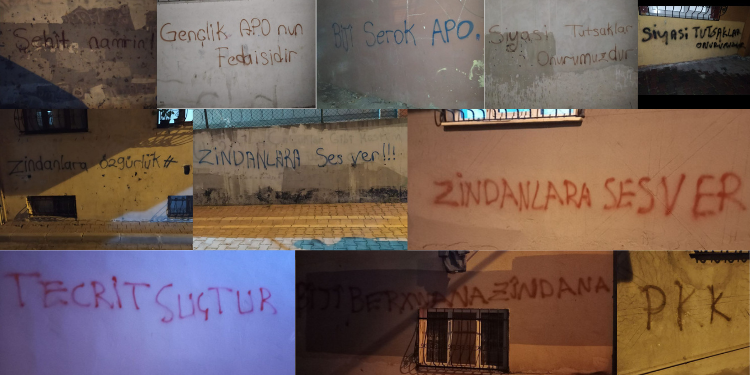 Şehit namrin!
Gençlik APO nun
Fedaisidir
Biji Serok APO.
Siyasi Tutsaklar
Onurumuzdur
Siyasi TUTSAKLAR
ONURUMUZDUR
Zindanlara özgürlük#
ZİNDANLARA Ses ver!!!
ZİNDANLARA SES VER
TECRİT SUÇTUR
BİJİ BERXWANA ZİNDANA
PKK